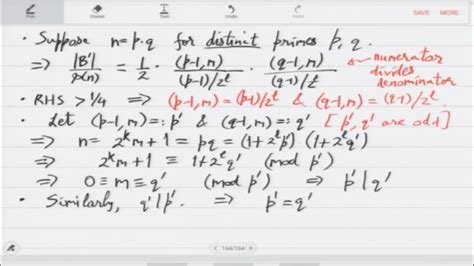 Pen Eraser Text Undo Redo SAVE MORE
• Suppose n=p·q for distinct primes p,q.
⇒ |B'|/φ(n) = 1/2 · (p-1,m)/((p-1)/2^ℓ) · (q-1,m)/((q-1)/2^ℓ)
numerator
divides
denominator
• RHS > 1/4 ⇒ (p-1,m) = (p-1)/2^ℓ & (q-1,m) = (q-1)/2^ℓ.
• Let (p-1,m) =: p' & (q-1,m) =: q' [p',q' are odd]
⇒ n = 2^k m+1 = pq = (1+2^ℓ p') (1+2^ℓ q')
⇒ 2^k m+1 ≡ 1+2^ℓ q' (mod p')
⇒ 0 ≡ m ≡ q' (mod p') ⇒ p'|q'
• Similarly, q'|p' ⇒ p'=q'
164/164